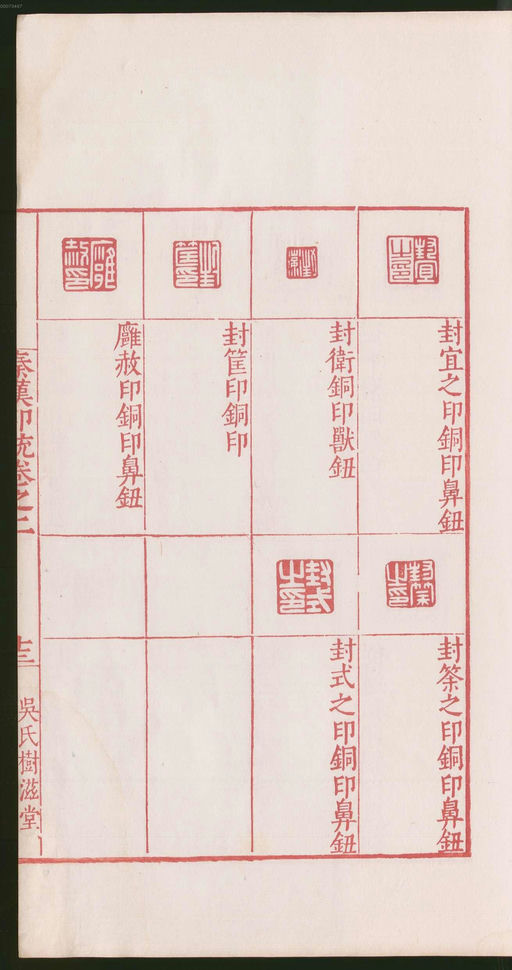 00073447
封宜之印銅印鼻鈕
封衛銅印獸鈕
封筐印銅印
龐赦印銅印鼻鈕
封筞之印銅印鼻鈕
封式之印銅印鼻鈕
秦漢印統卷之二
十三
吳氏樹滋堂